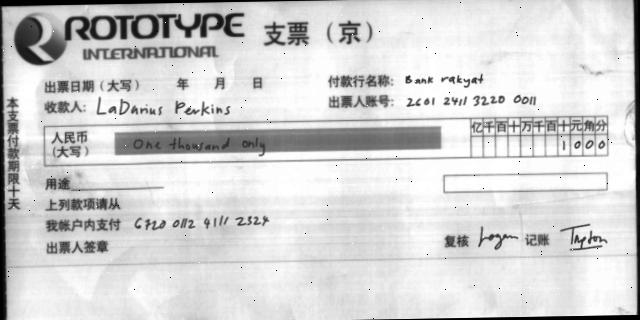 ROTOTYPE
INTERNATIONAL
支票（京）
出票日期（大写） 年 月 日 付款行名称: Bank rakyat
收款人: LaDarius Perkins 出票人账号: 2601 2411 3220 0011
本支票付款期限十天
人民币 亿千百十万千百十元角分
（大写） One thousand only 1000
用途
上列款项请从
我帐户内支付 6720 0112 4111 2324
出票人签章 复核 Logan 记账 Tayton